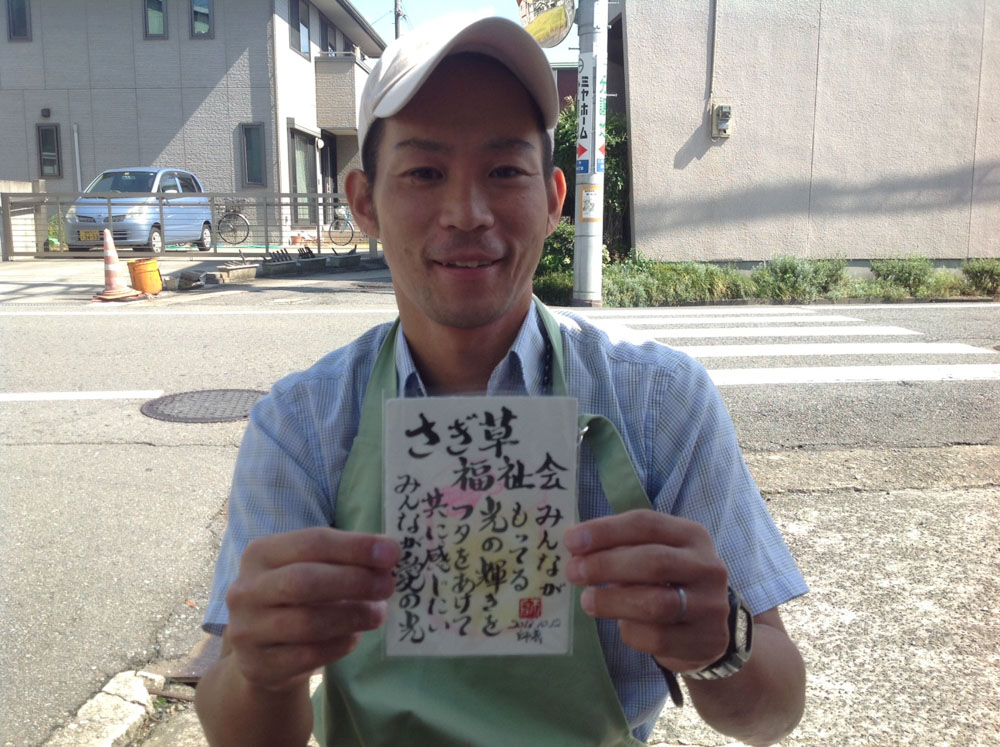 さぎ草
福祉会
みんなが
もってる
光の輝きを
フタをあけて
共に感じたい
みんなが愛の光
2014.10.12
ミヤホーム